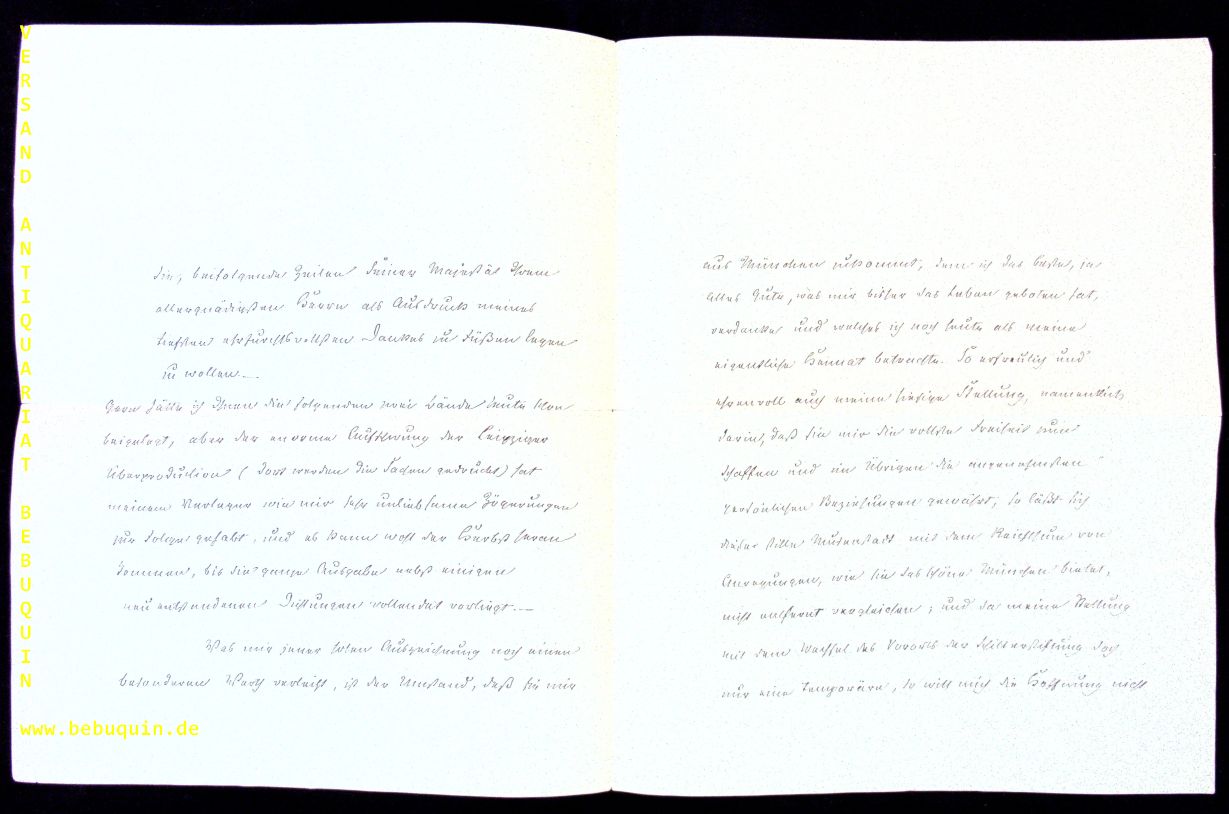 VERSAND ANTIQUARIAT BEBUQUIN
www.bebuquin.de
Sie, beifolgende Zeilen Seiner Majestät Ihrem
allergnädigsten Herrn als Ausdruck meines
tiefsten ehrfurchtsvollsten Dankes zu Füßen legen
zu wollen. —
Gern hätte ich Ihnen die folgenden zwei Bände heute schon
beigelegt, aber der enorme Aufschwung der Leipziger
Überproduction (dort werden die Sachen gedruckt) hat
meinem Verleger wie mir sehr unliebsame Zögerungen
zur Folge gehabt, und es kann wohl der Herbst heran
kommen, bis die ganze Ausgabe nebst einigen
neu entstandenen Dichtungen vollendet vorliegt. —
Was mir jener hohen Auszeichnung noch einen
besonderen Werth verleiht, ist der Umstand, daß sie mir
aus München zukommt, dem ich das Beste, ja
Alles Gute, was mir bisher das Leben geboten hat,
verdanke und welches ich noch heute als meine
eigentliche Heimat betrachte. So erfreulich und
ehrenvoll auch meine hiesige Stellung, namentlich
darin, daß sie mir die vollste Freiheit zum
Schaffen und im Übrigen die angenehmsten
persönlichen Beziehungen gewährt, so läßt sich
dieser stille Musenstadt mit dem Reichthum von
Anregungen, wie sie das schöne München bietet,
nicht entfernt vergleichen; und da meine Stellung
mit dem Wechsel des Vororts der Schillerstiftung doch
nur eine temporäre, so will mich die Hoffnung nicht